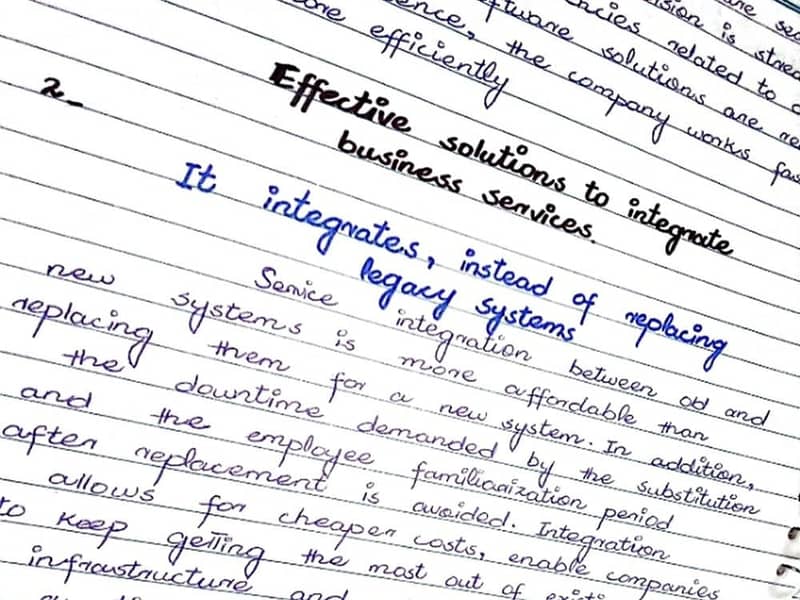 are sec
ision is stored
ncies related to
ftware solutions are re
ence, the company works fas
efficiently
2_
Effective solutions to integrate
business services.
It integrates, instead of replacing
legacy systems
Service integration between old and
new systems is more affordable than
replacing them for a new system. In addition,
the downtime demanded by the substitution
and the employee familiarization period
after replacement is avoided. Integration
allows for cheaper costs, enable companies
to keep getting the most out of
infraustructure and